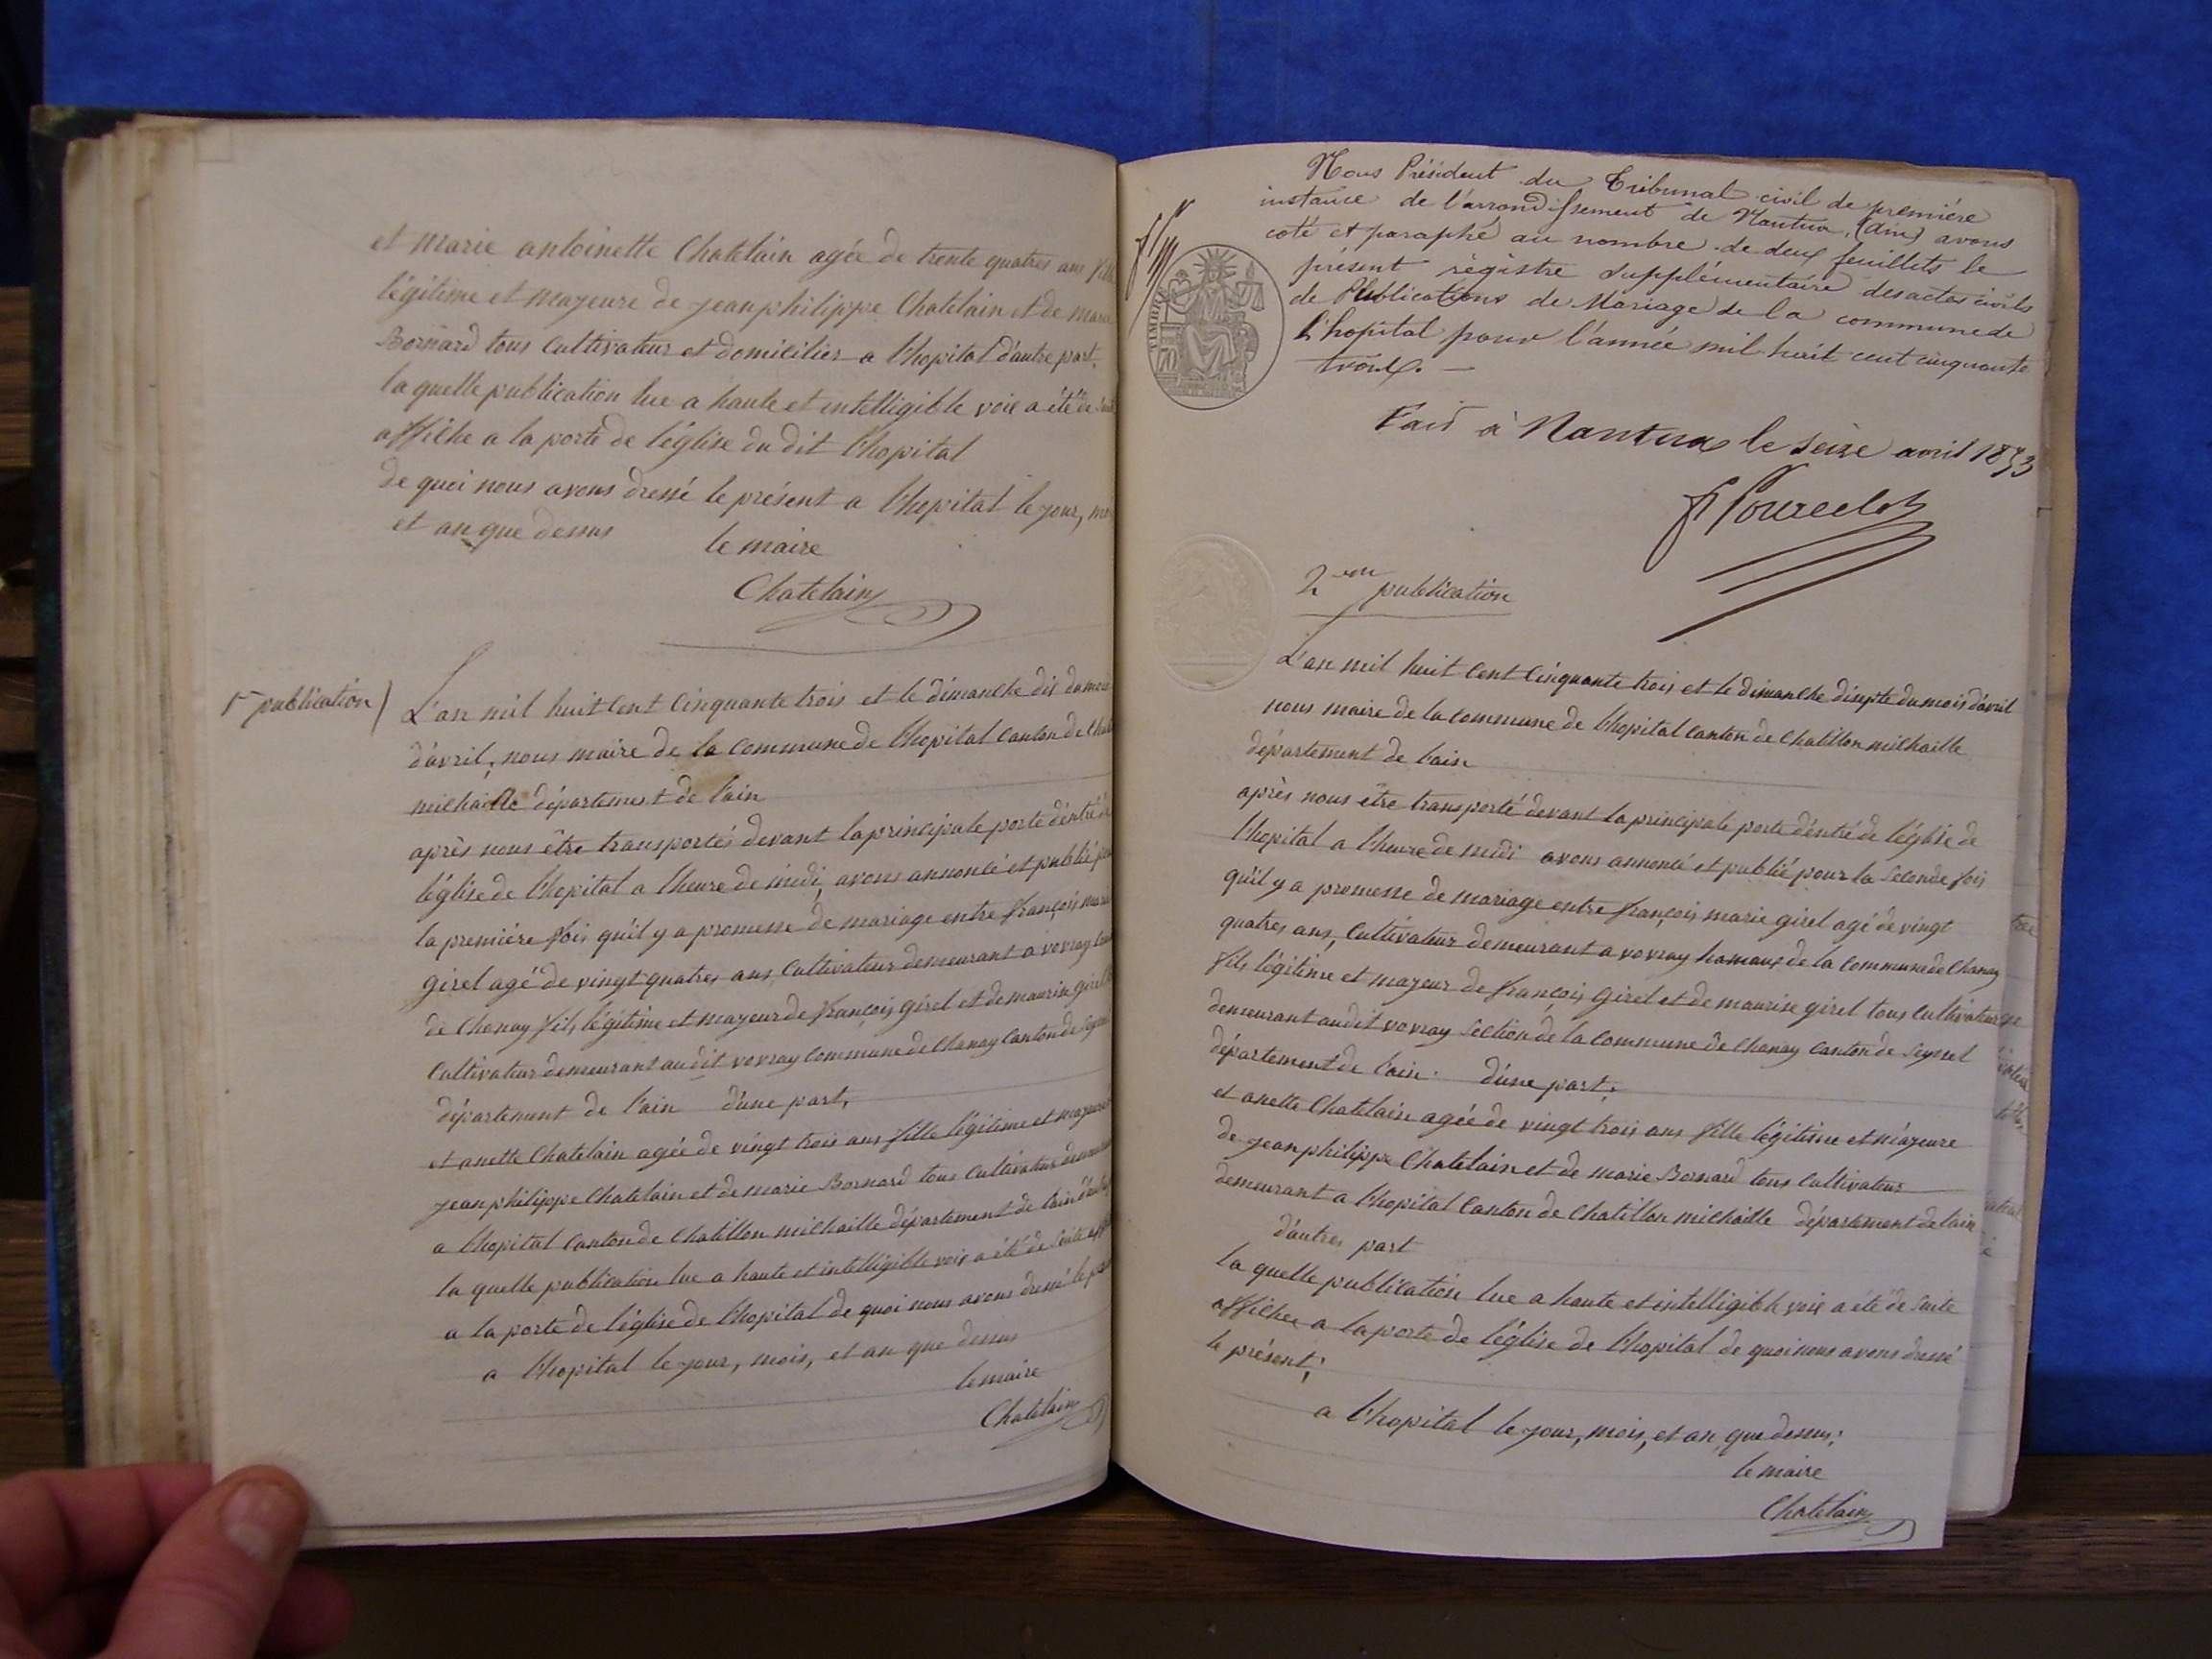 et marie antoinette Chatelain agée de trente quatres ans fille
légitime et majeure de jeanphilippe Chatelain et de marie
Bornard tous Cultivateur et domiciliés a l'hopital d'autre part.
la quelle publication lue a haute et intelligible voix a été de
affiche a la porte de l'église du dit l'hopital
de quoi nous avons dressé le présent a l'hopital le jour,
et an que dessus
le maire
Chatelain
1re publication
L'an mil huit Cent Cinquante trois et le dimanche dix du mois
d'avril, nous maire de la Commune de l'hopital Canton de
michaille département de l'ain
après nous être transportés devant la principale porte d'entré de
l'église de l'hopital a l'heure de midi, avons annoncé et publié
la première fois qu'il y a promesse de mariage entre françois marie
girel agé de vingt quatres ans, Cultivateur demeurant a vovray
de Chanay fils légitime et majeur de françois girel et de maurise girel
Cultivateur demeurant au dit vovray Commune de Chanay Canton de
département de l'ain d'une part,
et anette Chatelain agée de vingt trois ans fille légitime et majeure
jeanphilippe Chatelain et de marie Bornard tous Cultivateur
a l'hopital Canton de Chatillon michaille département de l'ain
la quelle publication lue a haute et intelligible voix a été de suite
a la porte de l'église de l'hopital de quoi nous avons dressé le
a l'hopital le jour, mois, et an que dessus
le maire
Chatelain
Nous Président du Tribunal civil de première
instance de l'arrondissement de Nantua, (Ain) avons
coté et paraphé au nombre de deux feuillets le
présent régistre supplémentaire des actes civils
de Publications de Mariage de la commune de
l'hopital pour l'année mil huit cent cinquante
trois. —
TIMBRE
Fait à Nantua le seize avril 1853
2em publication
L'an mil huit Cent Cinquante trois et le dimanche disepte du mois d'avril
nous maire de la Commune de l'hopital Canton de Chatillon michaille
département de l'ain
après nous être transporté devant la principale porte d'entré de l'église de
l'hopital a l'heure de midi avons annoncé et publié pour la seconde fois
qu'il y a promesse de mariage entre françois marie girel agé de vingt
quatres ans, Cultivateur demeurant a vovray hamaux de la Commune de Chanay
fils légitime et majeur de françois Girel et de maurise girel tous Cultivateur
demeurant au dit vovray Section de la Commune de Chanay Canton de Seyssel
département de l'ain. d'une part;
et anette Chatelain agée de vingt trois ans fille légitime et majeure
de jeanphilippe Chatelain et de marie Bornard tous Cultivateur
demeurant a l'hopital Canton de Chatillon michaille département de l'ain
d'autres part
la quelle publication lue a haute et intelligible voix a été de suite
affichee a la porte de l'église de l'hopital de quoi nous avons dressé
le présent;
a l'hopital le jour, mois, et an que dessus;
le maire
Chatelain